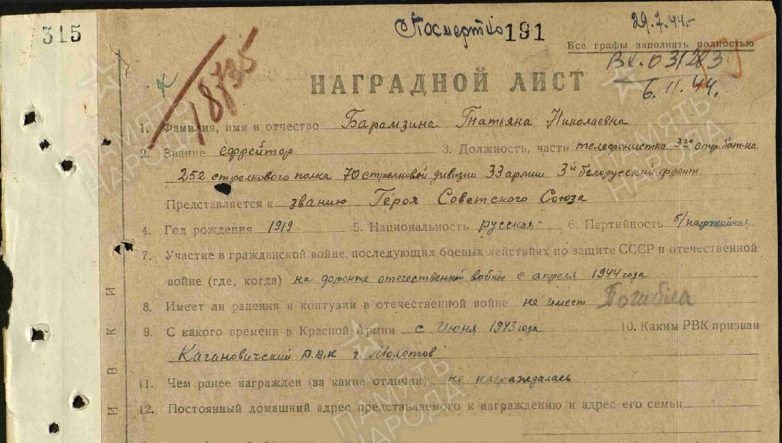 315
Посмертно 191
29.7.44
Все графы заполнять полностью
Вх. 031283
6.11.44.
18735
НАГРАДНОЙ ЛИСТ
1. Фамилия, имя и отчество Барамзина Татьяна Николаевна
2. Звание ефрейтор 3. Должность, часть телефонистка 3го стр. бат-на
252 стрелкового полка 70 стрелковой дивизии 33 армии 3й Белорусский фронт.
Представляется к званию Героя Советского Союза
4. Год рождения 1919 5. Национальность русская 6. Партийность б/партийная
7. Участие в гражданской войне, последующих боевых действиях по защите СССР и отечественной
войне (где, когда) на фронте отечественной войны с апреля 1944 года
8. Имеет ли ранения и контузии в отечественной войне не имеет Погибла
9. С какого времени в Красной Армии с Июня 1943 года 10. Каким РВК призван
Кагановичский Р.В.К г. Молотов
11. Чем ранее награжден (за какие отличия) не награждалась
12. Постоянный домашний адрес представляемого к награждению и адрес его семьи
ИВКИ
ПАМЯТЬ НАРОДА